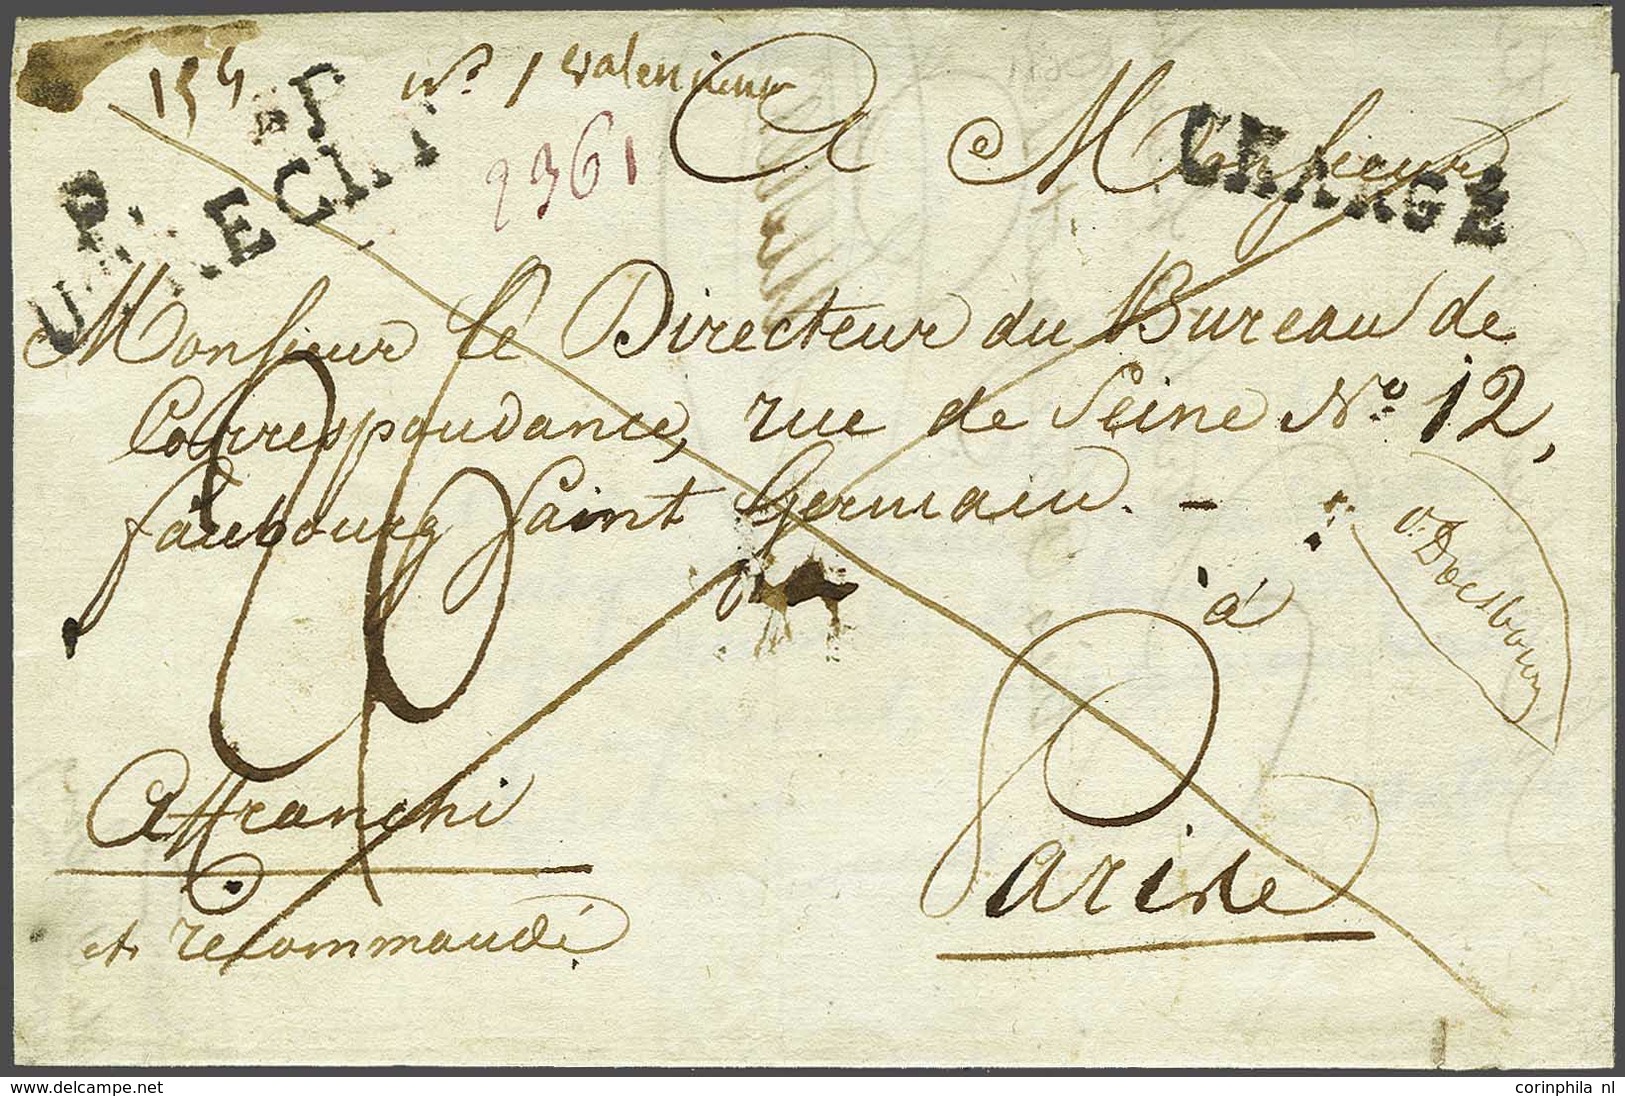 154 N.º 1 Valencienn
P. P.
UTRECHT
2361
CHARGÉ
A Monsieur
Monsieur le Directeur du Bureau de
Correspondance, rue de Seine Nº. 12,
faubourg Saint Germain. -
à
v: Doesbourg
Affranchi
et recommandé
Paris
www.delcampe.net
corinphila nl